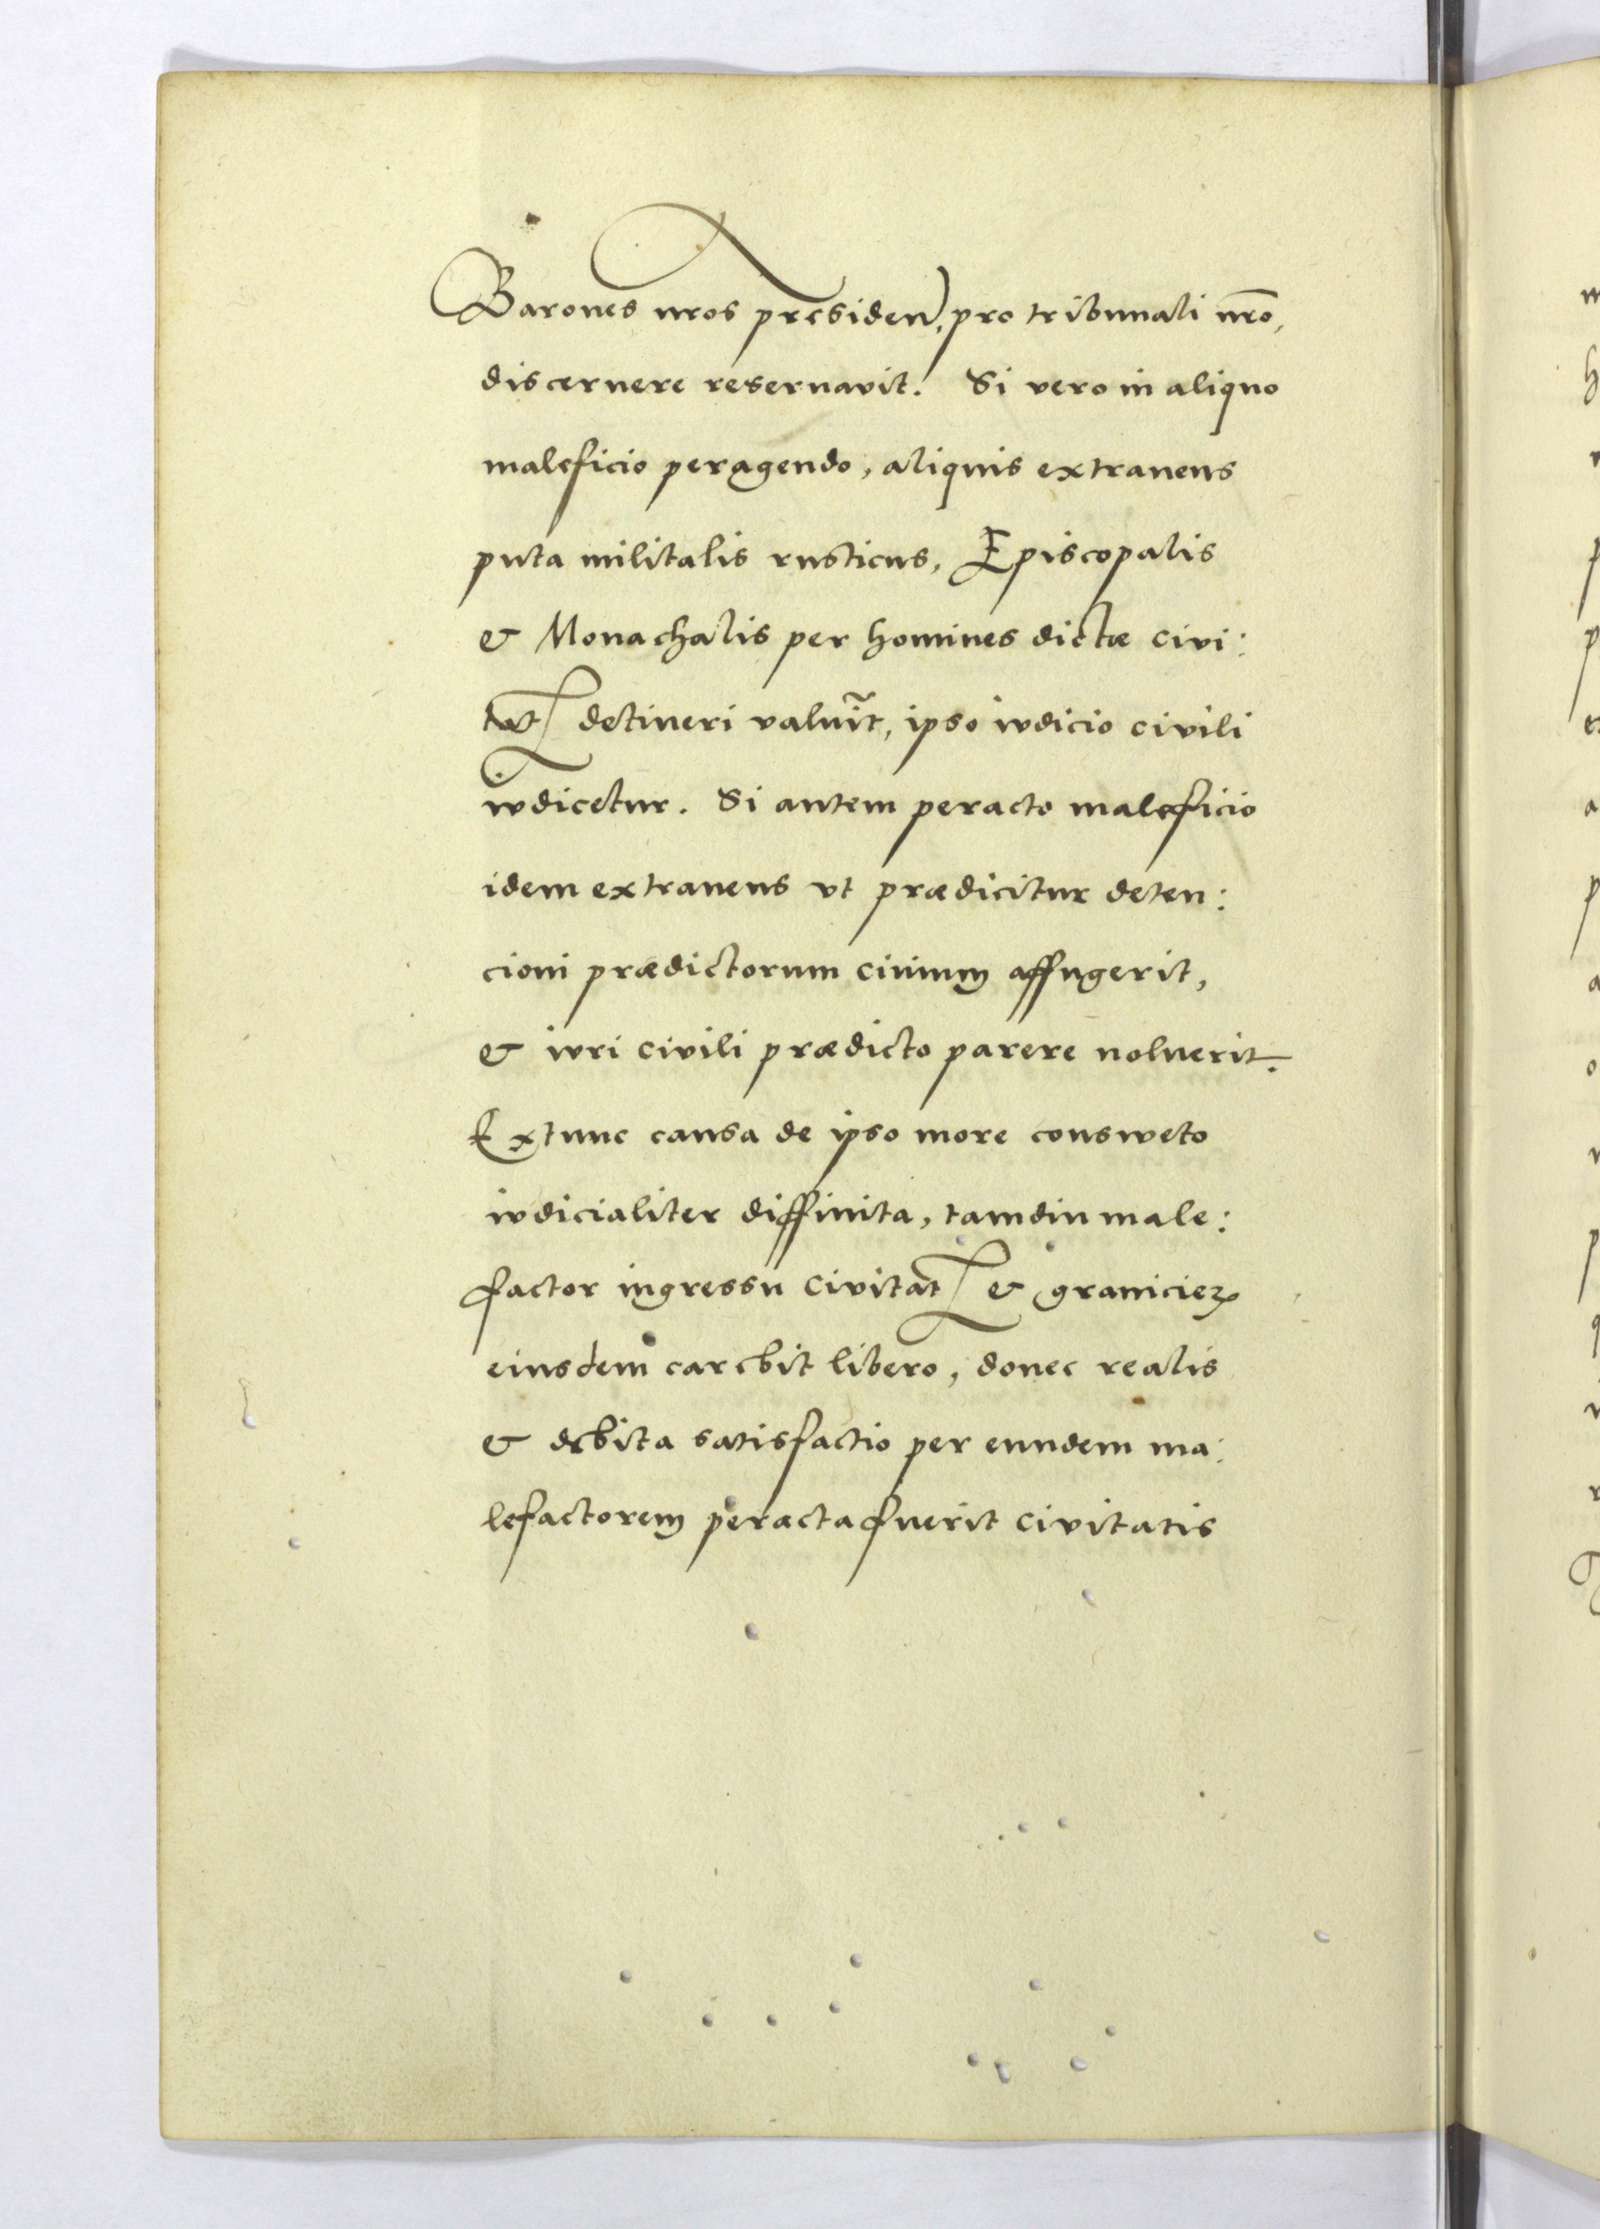 Barones nros presiden, pro tribunali nr̄o,
discernere reseruavit. Si vero in aliquo
maleficio peragendo, aliquis extraneus
puta militalis rusticus, Episcopalis
& Monachalis per homines dictæ civi:
tat detineri valuīt, ipso iudicio civili
iudicetur. Si autem peracto maleficio
idem extraneus vt prædicitur deten:
cioni prædictorum ciuium affugerit,
& iuri civili prædicto parere noluerit.
Extunc causa de ipso more consweto
iudicialiter diffinita, tamdiu male:
factor ingressu civitat & granicieꝝ
eiusdem carebit libero, donec realis
& debita satisfactio per eundem ma:
lefactorem peracta fuerit civitatis